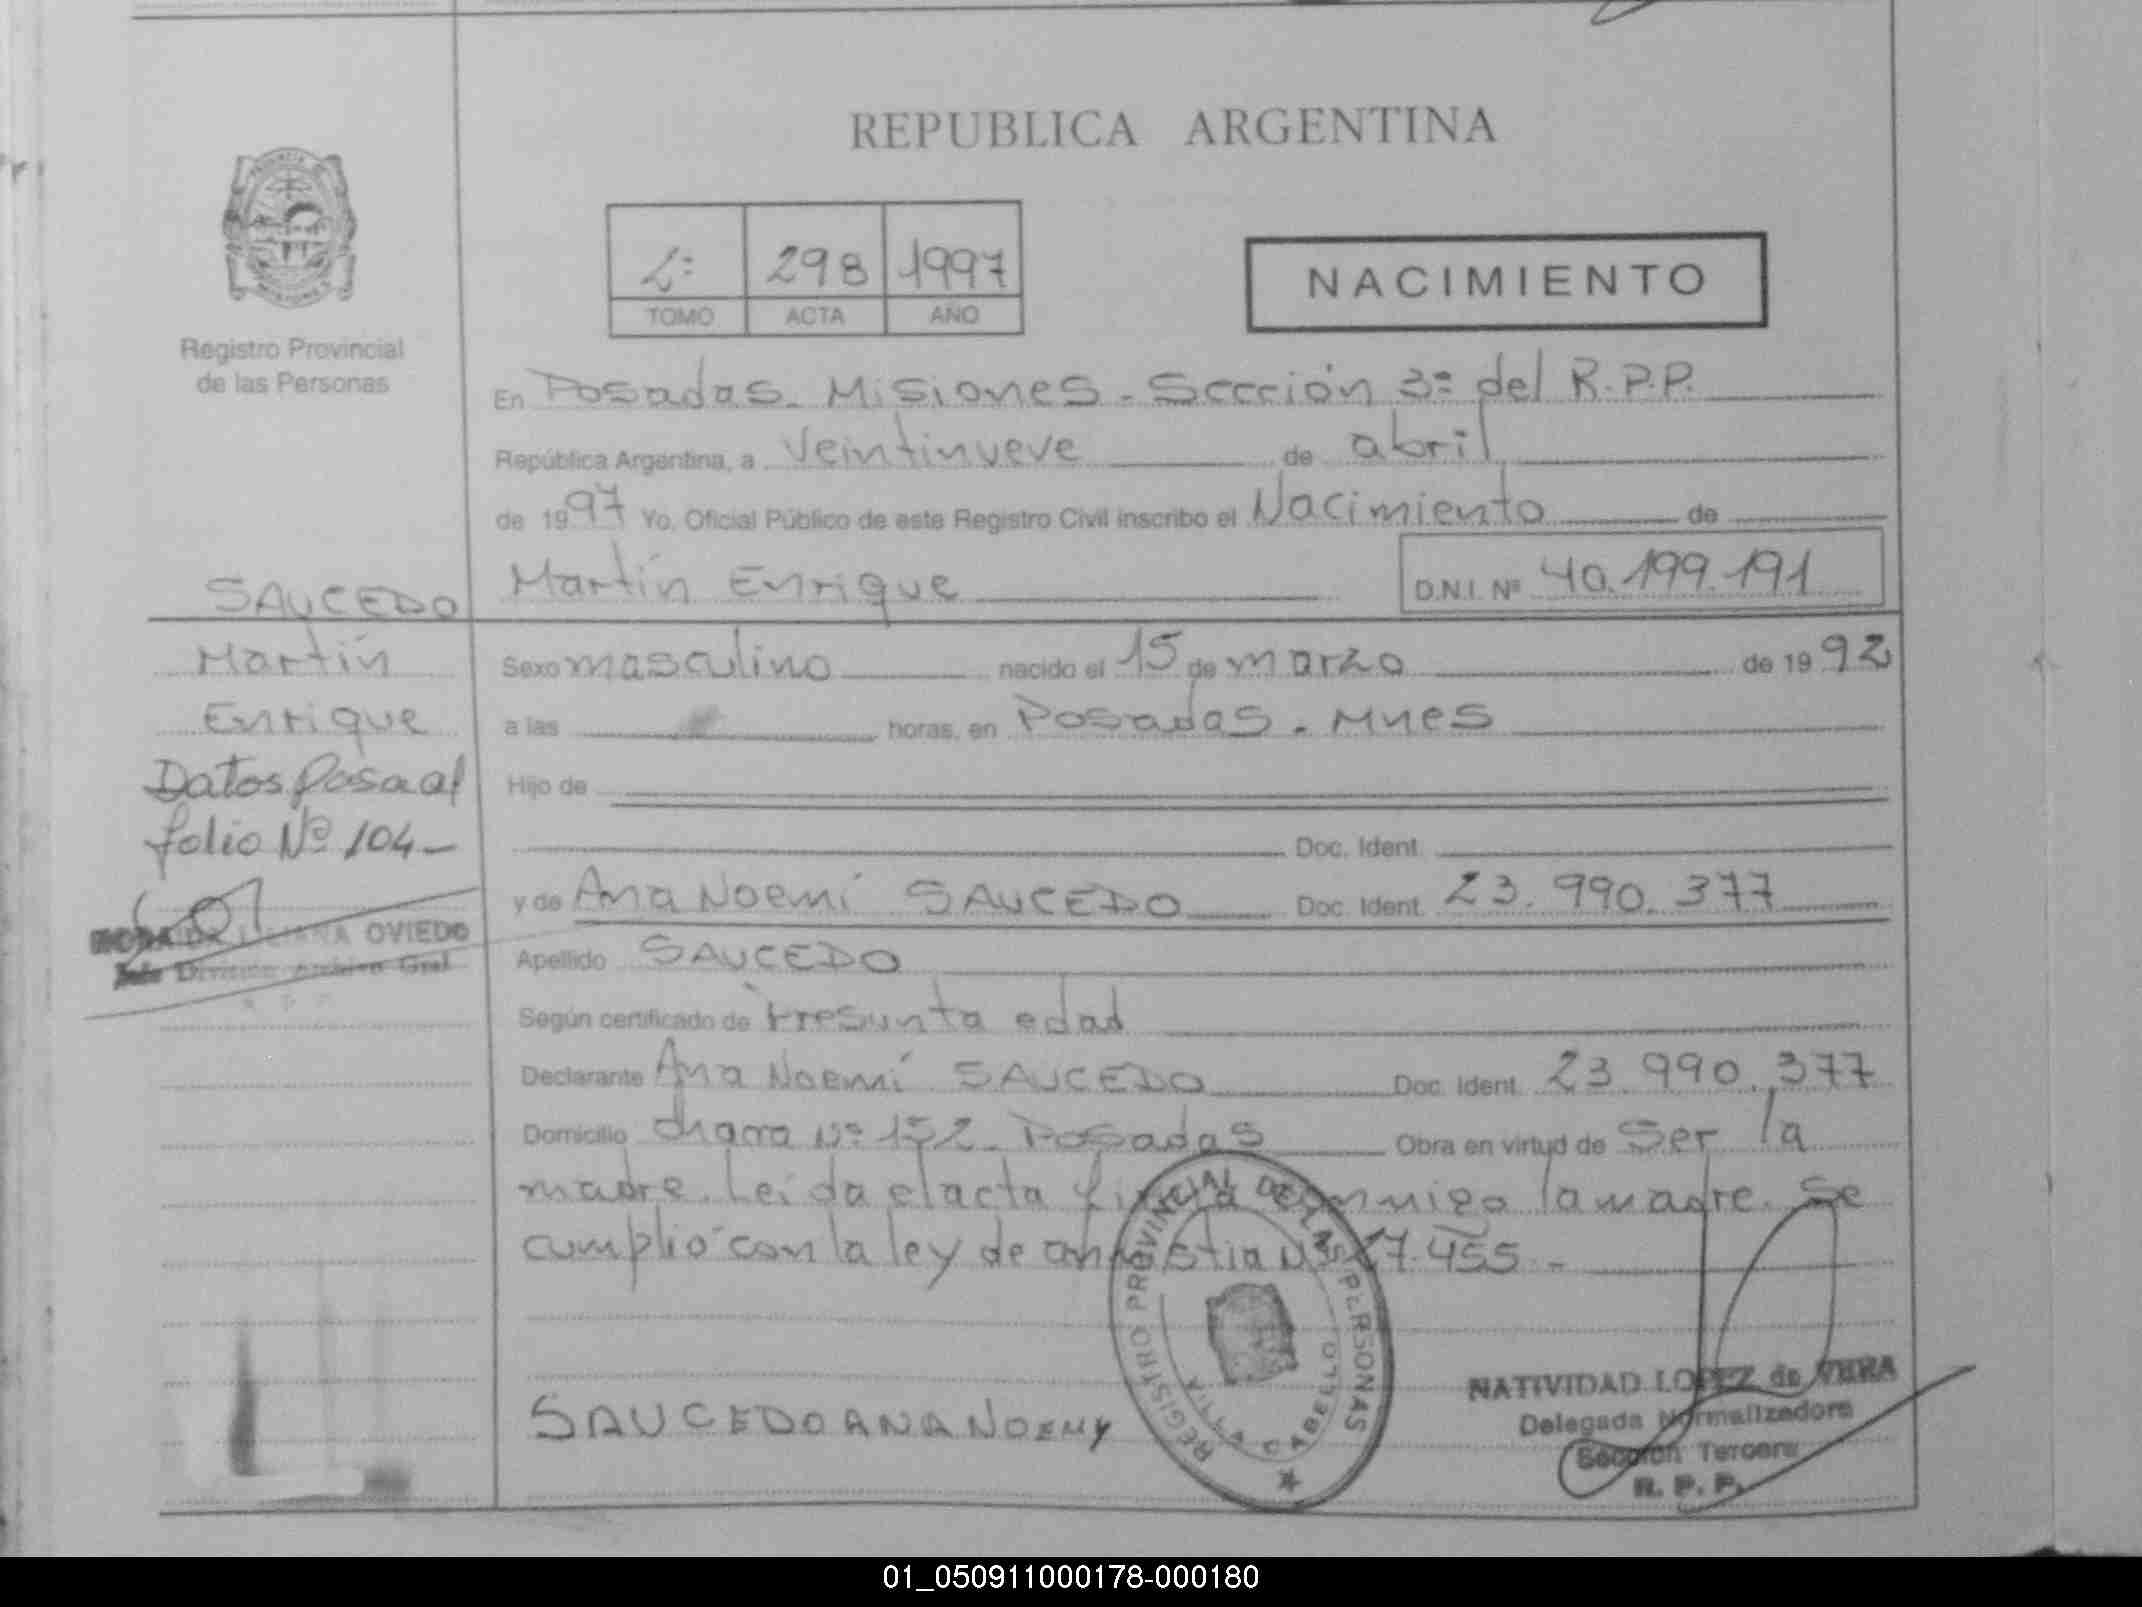 REPUBLICA ARGENTINA
2º 298 1997
TOMO ACTA AÑO
NACIMIENTO
Registro Provincial
de las Personas
En Posadas - Misiones - Sección 3º del R.P.P.
República Argentina, a veintinueve de abril
de 1997 Yo, Oficial Público de este Registro Civil inscribo el Nacimiento de
Martín Enrique D.N.I. Nº 40.199.191
SAUCEDO
Martín
Enrique
Datos Pasa al
folio Nº 104-
OVIEDO
Jefe División Archivo Gral
Sexo masculino nacido el 15 de marzo de 1992
a las horas, en Posadas - Mnes
Hijo de
Doc. Ident.
y de Ana Noemí SAUCEDO Doc. Ident. 23.990.377
Apellido SAUCEDO
Según certificado de Presunta edad
Declarante Ana Noemí SAUCEDO Doc. Ident. 23.990.377
Domicilio chacra Nº 152 - Posadas Obra en virtud de Ser la
madre. Leída el acta firma conmigo la madre. Se
cumplió con la ley de amnistía Nº 17.455 -
SAUCEDO ANA NOEMY
REGISTRO PROVINCIAL DE LAS PERSONAS
VILLA CABELLO
NATIVIDAD LOPEZ de VERA
Delegada Normalizadora
Sección Tercera
R. P. P.
01_050911000178-000180